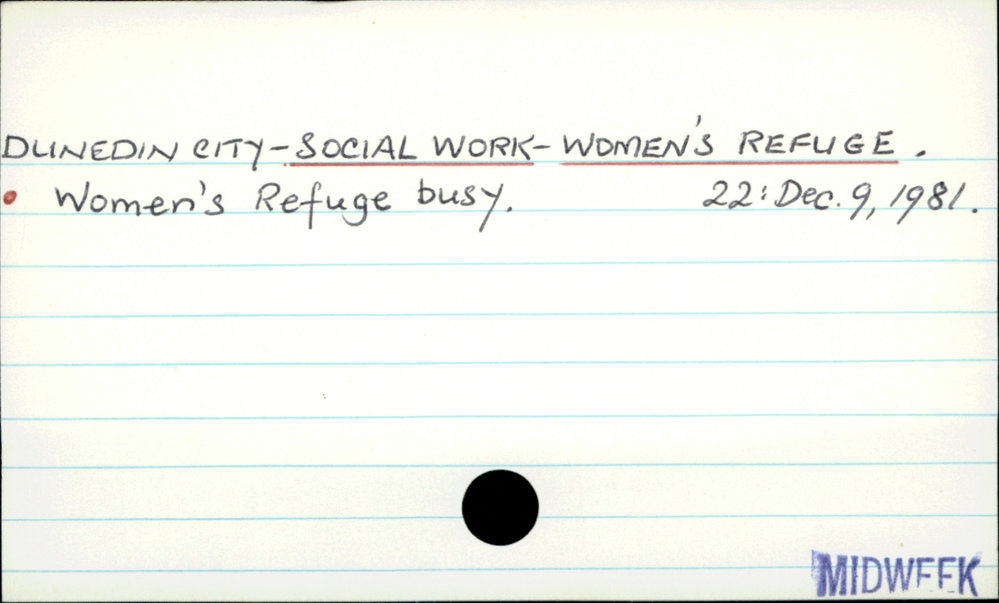 DUNEDIN CITY - SOCIAL WORK - WOMEN'S REFUGE.
• Women's Refuge busy. 22: Dec. 9, 1981.
MIDWEEK